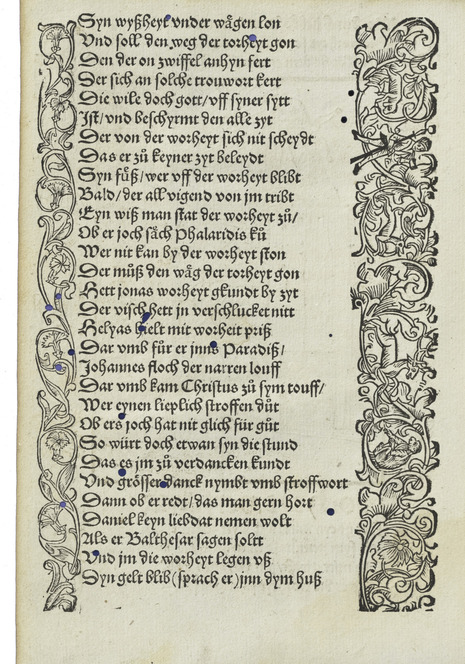 Syn wyßheyt vnder wägen lon
Vnd soll den weg der torheyt gon
Den der on zwiffel anhyn fert
Der sich an solche trouwort kert
Die wile doch gott/vff syner sytt
Ist/vnd beschyrmt den alle zyt
Der von der worheyt sich nit scheydt
Das er zů keyner zyt beleydt
Syn fůß/wer vff der worheyt blibt
Bald/der all vigend von jm tribt
Eyn wiß man stat der worheyt zů/
Ob er joch säch Phalaridis ků
Wer nit kan by der worheyt ston
Der můß den wäg der torheyt gon
Hett jonas worheyt gkundt by zyt
Der visch hett jn verschlucket nitt
Helyas hielt mit worheit priß
Dar vmb für er jnns Paradiß/
Johannes floch der narren louff
Dar vmb kam Christus zů sym touff/
Wer eynen lieplich stroffen důt
Ob ers joch hat nit glich für gůt
So würt doch etwan syn die stund
Das es jm zů verdancken kundt
Vnd grösser danck nymbt vmb stroffwort
Dann ob er redt/das man gern hort
Daniel keyn liebdat nemen wolt
Als er Balthesar sagen soltt
Vnd jm die worheyt legen vß
Dyn gelt blib (sprach er) jnn dym huß